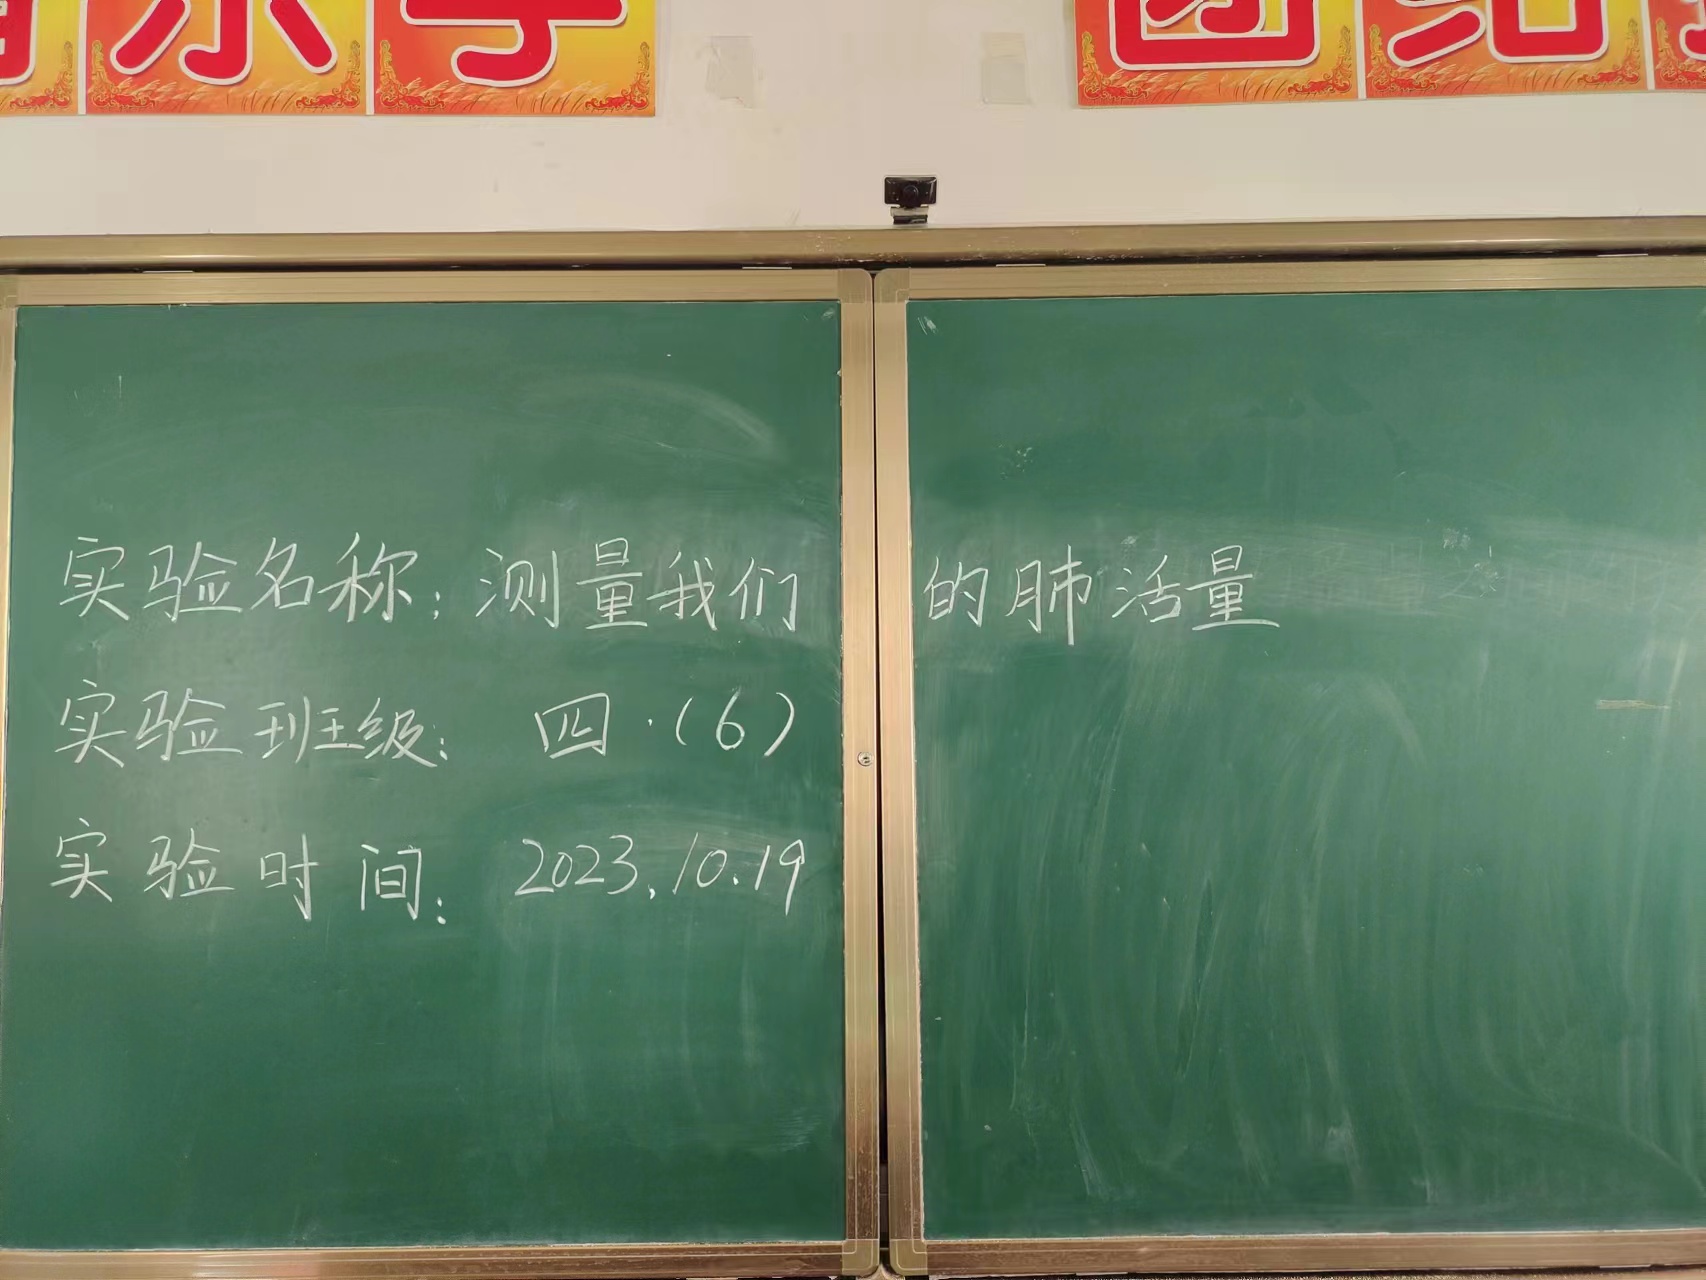 实验名称：测量我们的肺活量
实验班级：四·（6）
实验时间：2023.10.19